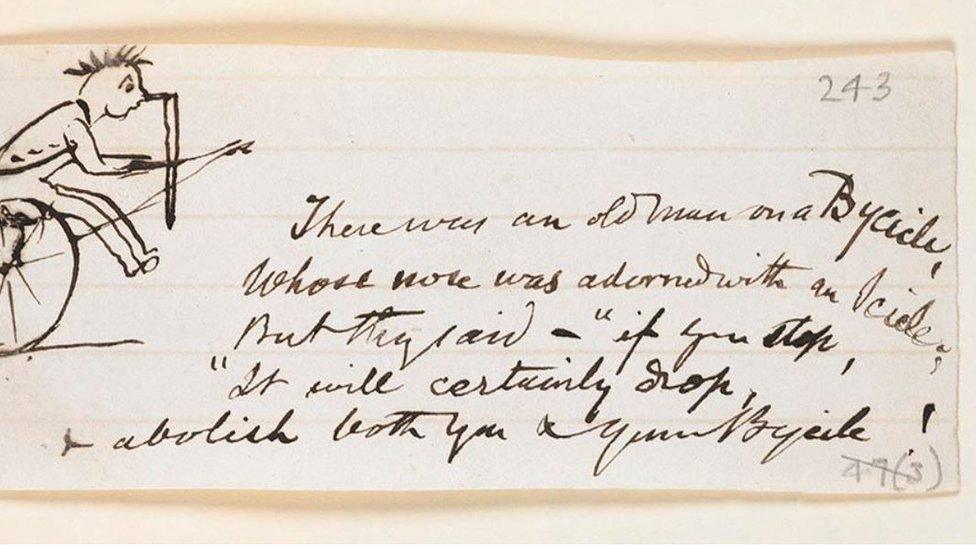 243
There was an old man on a Bycicle,
Whose nose was adorned with an Icicle;
But they said – "if you stop,
"It will certainly drop,
& abolish both you & your Bycicle!
47(3)